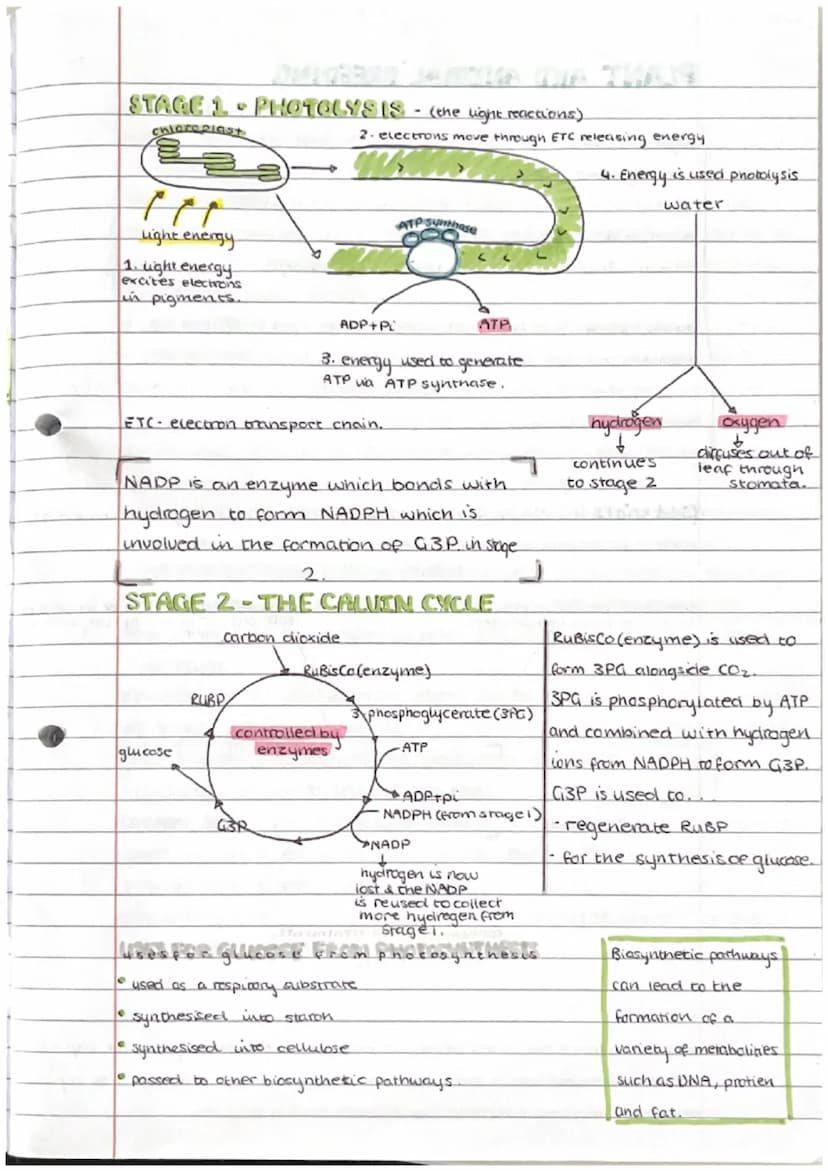 STAGE 1 - PHOTOLYSIS - (the light reactions)
chloroplast
2. electrons move through ETC releasing energy
4. Energy is used photolysis
water
ATP synthase
light energy
1. light energy
excites electrons
in pigments.
ADP+Pi
ATP
3. energy used to generate
ATP via ATP synthase.
ETC - electron transport chain.
hydrogen
oxygen
continues
to stage 2
diffuses out of
leaf through
stomata.
NADP is an enzyme which bonds with
hydrogen to form NADPH which is
involved in the formation of G3P in stage
2.
STAGE 2 - THE CALVIN CYCLE
carbon dioxide
RuBisCo (enzyme)
RUBP
3 phosphoglycerate (3PG)
controlled by
enzymes
glucose
ATP
ADP+pi
NADPH (from stage 1)
G3P
NADP
hydrogen is now
lost & the NADP
is reused to collect
more hydrogen from
stage 1.
RuBisCo (enzyme) is used to
form 3PG alongside CO₂.
3PG is phosphorylated by ATP
and combined with hydrogen
ions from NADPH to form G3P.
G3P is used to...
- regenerate RuBP
- for the synthesis of glucose.
uses for glucose from photosynthesis
• used as a respirory substrate
• synthesised into starch
• synthesised into cellulose
• passed to other biosynthetic pathways.
Biosynthetic pathways
can lead to the
formation of a
variety of metabolites
such as DNA, protien
and fat.